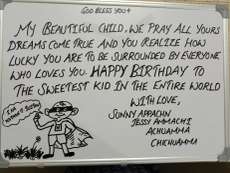 GOD BLESS YOU
MY BEAUTIFUL CHILD, WE PRAY ALL YOURS
DREAMS COME TRUE AND YOU REALIZE HOW
LUCKY YOU ARE TO BE SURROUNDED BY EVERYONE
WHO LOVES YOU. HAPPY BIRTHDAY TO
THE SWEETEST KID IN THE ENTIRE WORLD
WITH LOVE,
SUNNY APPACHN
JESSY AMMACHI
ACHUAMMA
CHICHUAMMA
I'M